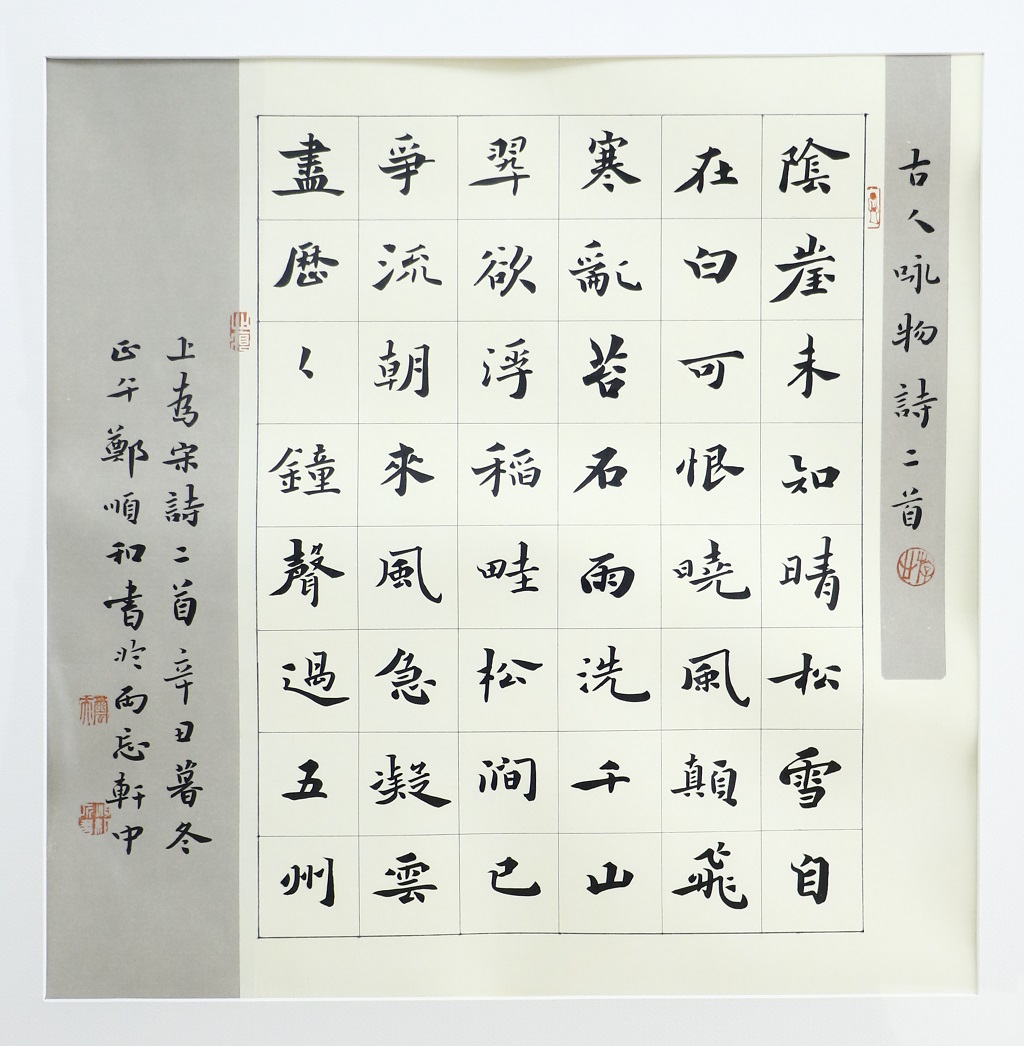 古人咏物詩二首
陰崖未知晴松雪自
在白可恨曉風顛飛
寒亂若石雨洗千山
翠欲浮稻畦松澗已
爭流朝來風急凝雲
盡歷〻鐘聲過五州
上為宋詩二首辛丑暮冬
正午鄭順和書於兩忘軒中